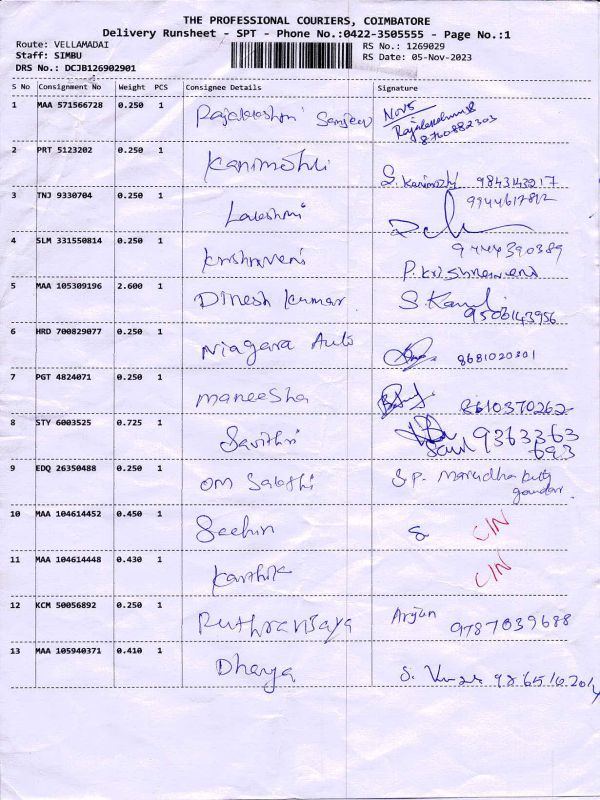 THE PROFESSIONAL COURIERS, COIMBATORE
Delivery Runsheet - SPT - Phone No.:0422-3505555 - Page No.:1
Route: VELLAMADAI
Staff: SIMBU
DRS No.: DCJB126902901
RS No.: 1269029
RS Date: 05-Nov-2023
S No Consignment No Weight PCS Consignee Details Signature
1 MAA 571566728 0.250 1 Rajalakshmi Sanjeev
8760882303
2 PRT 5123202 0.250 1 Kanimozhli S. Kanimozhi 984343217
3 TNJ 9330704 0.250 1 Lakshmi 9944617812
4 SLM 331550814 0.250 1 Krishnaveni 9444390389
P. Krishnaveni
5 MAA 105309196 2.600 1 Dinesh Kumar 9506143956
6 HRD 700829077 0.250 1 Niagara Auto 8681020301
7 PGT 4824071 0.250 1 Maneesha 8610370262
8 STY 6003525 0.725 1 Savithri 9363363
693
9 EDQ 26350488 0.250 1 OM Sakthi S.P. Marudha
gounder
10 MAA 104614452 0.450 1 S CIN
11 MAA 104614448 0.430 1 Karthik CIN
12 KCM 50056892 0.250 1 Ruthranjaya Arjun 9787039688
13 MAA 105940371 0.410 1 Dharya S.